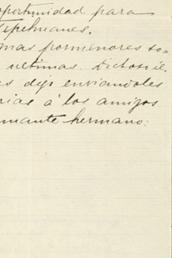 oportunidad para
Tepehuanes.
mas pormenores so-
victimas.
es dejo enviandoles
rias á los amigos
amante hermano: